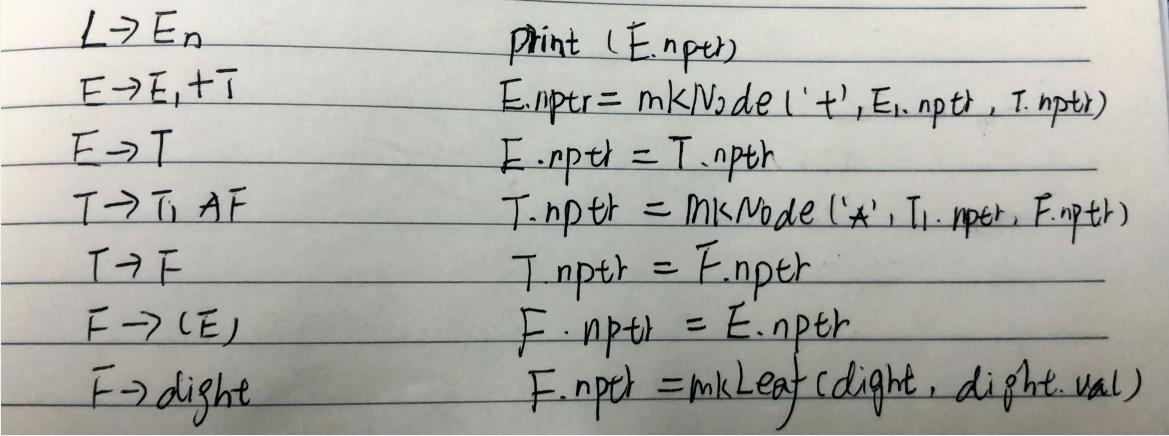 L→En print (E.nptr)
E→E₁+T E.nptr = mkNode ('+', E₁.nptr, T.nptr)
E→T E.nptr = T.nptr
T→T₁ AF T.nptr = mkNode ('A', T₁.nptr, F.nptr)
T→F T.nptr = F.nptr
F→(E) F.nptr = E.nptr
F→dight F.nptr = mkLeaf (dight, dight.val)